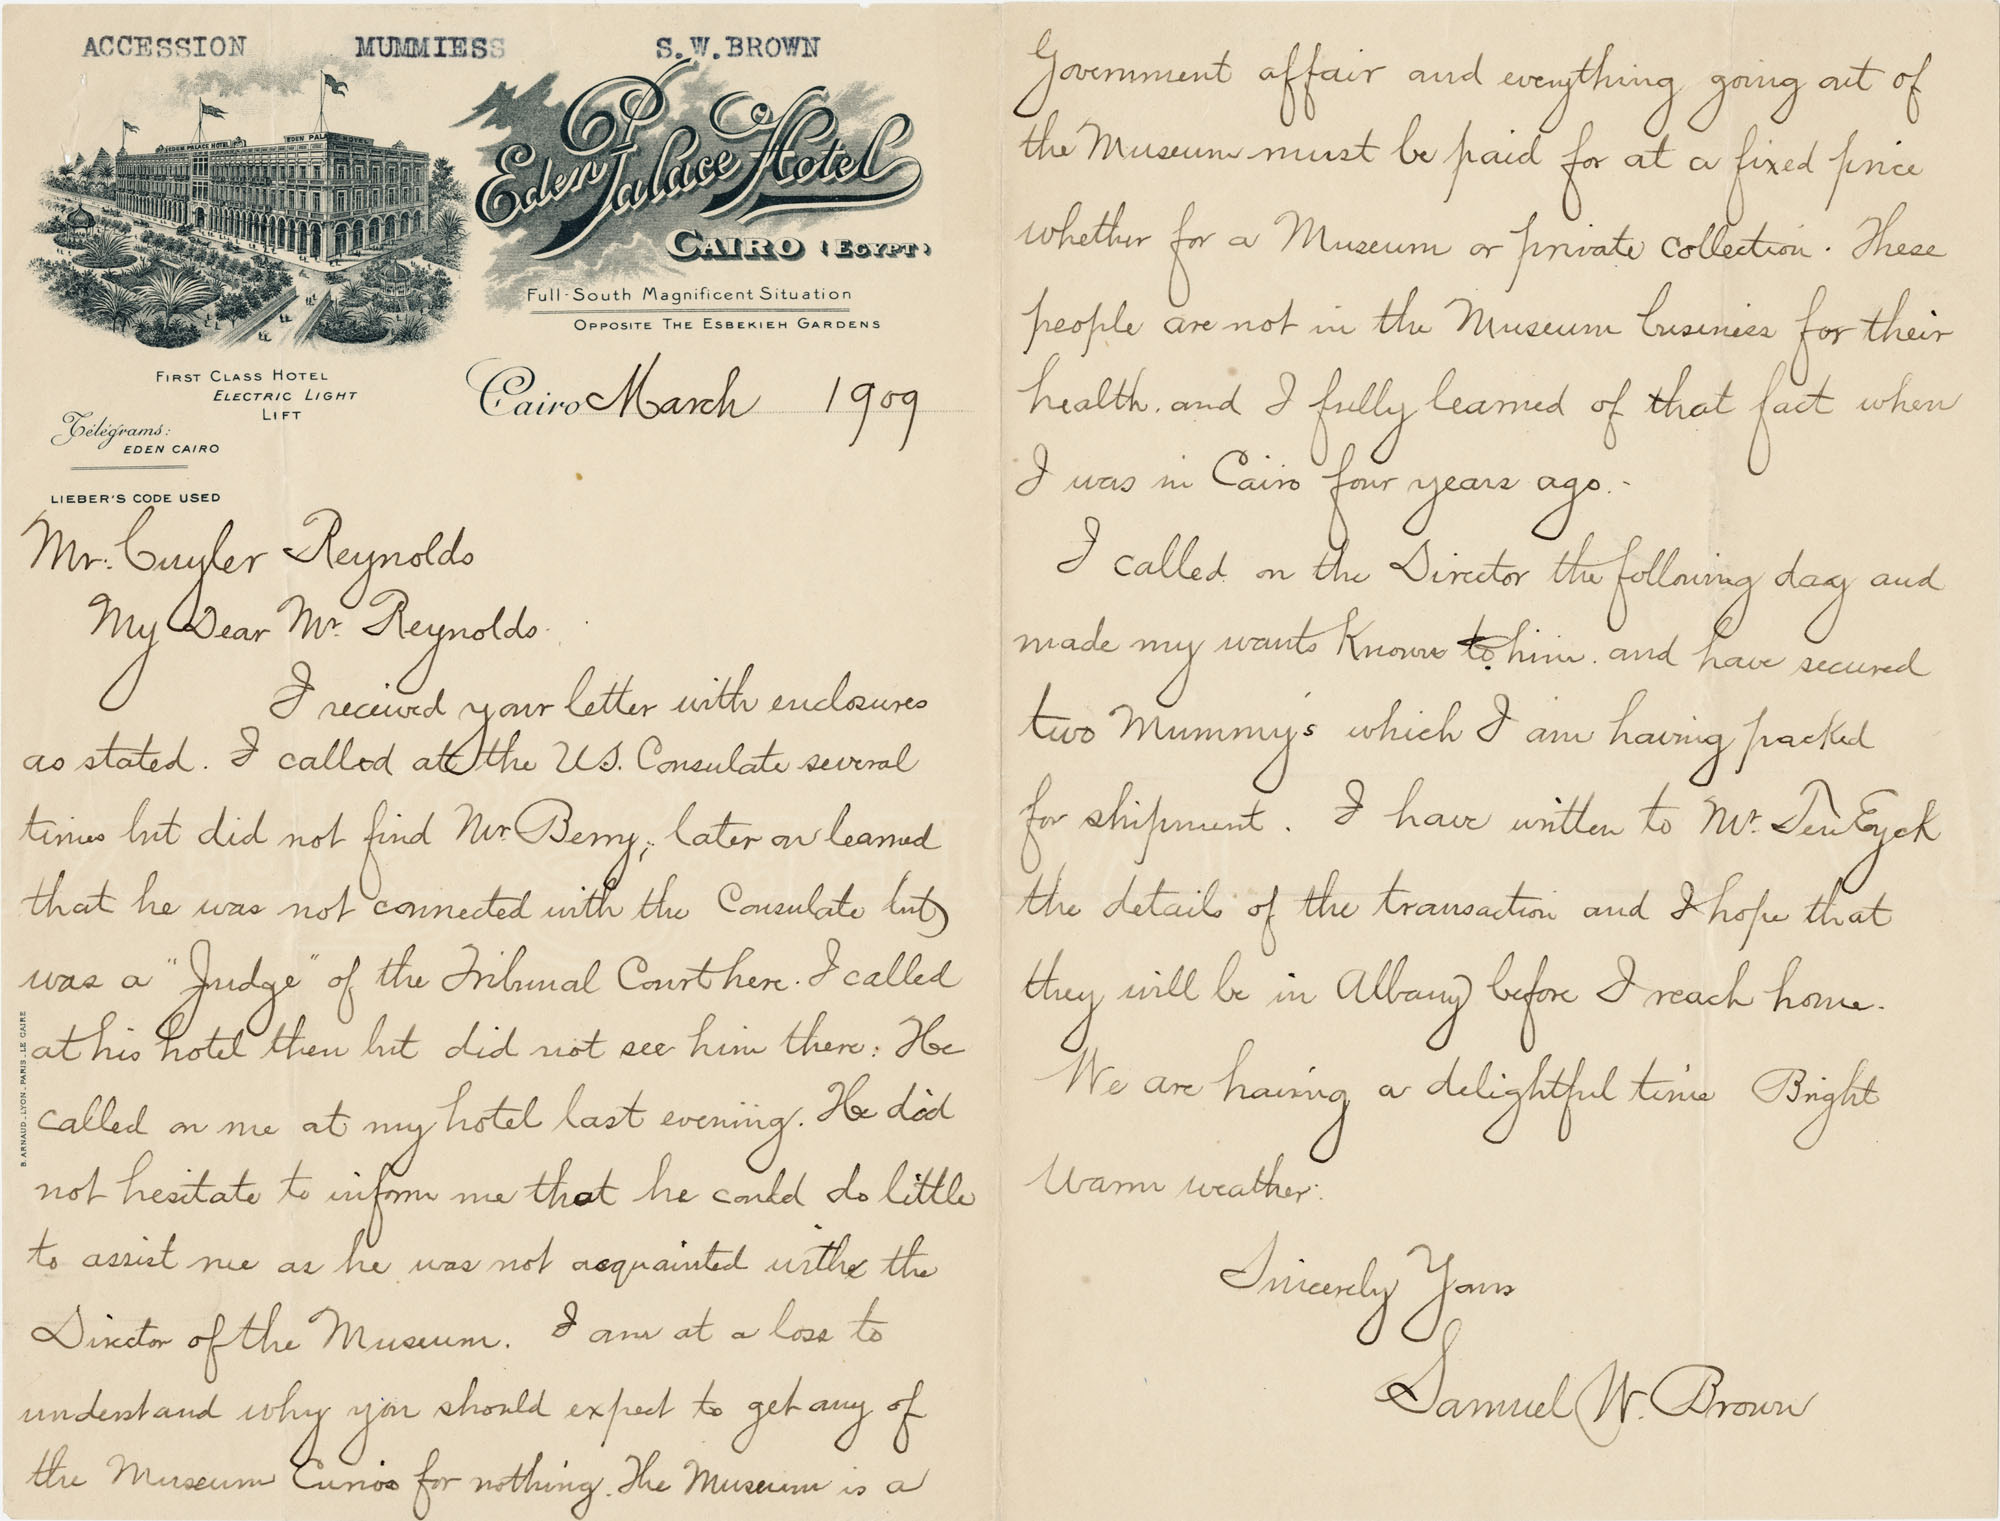 ACCESSION MUMMIESS S.W.BROWN
EDEN PALACE HOTEL
EDEN PALACE HOTEL
Eden Palace Hotel
CAIRO (EGYPT)
Full-South Magnificent Situation
OPPOSITE THE ESBEKIEH GARDENS
FIRST CLASS HOTEL
ELECTRIC LIGHT
LIFT
Télégrams:
EDEN CAIRO
LIEBER'S CODE USED
Cairo March 1909
Mr. Cuyler Reynolds
My Dear Mr. Reynolds.
I received your letter with enclosures
as stated. I called at the U.S. Consulate several
times but did not find Mr Berry; later on learned
that he was not connected with the Consulate but
was a "Judge" of the Tribunal Court here. I called
at his hotel then but did not see him there. He
called on me at my hotel last evening. He did
not hesitate to inform me that he could do little
to assist me as he was not acquainted with the
Director of the Museum. I am at a loss to
understand why you should expect to get any of
the Museum Curios for nothing. The Museum is a
B. ARNAUD - LYON - PARIS - LE CAIRE
Government affair and everything going out of
the Museum must be paid for at a fixed price
whether for a Museum or private collection. These
people are not in the Museum business for their
health. and I fully learned of that fact when
I was in Cairo four years ago.-
I called on the Director the following day and
made my wants known to him. and have secured
two Mummy's which I am having packed
for shipment. I have written to Mr. Ten Eyck
the details of the transaction and I hope that
they will be in Albany before I reach home.
We are having a delightful time Bright
warm weather.
Sincerely Yours
Samuel W. Brown